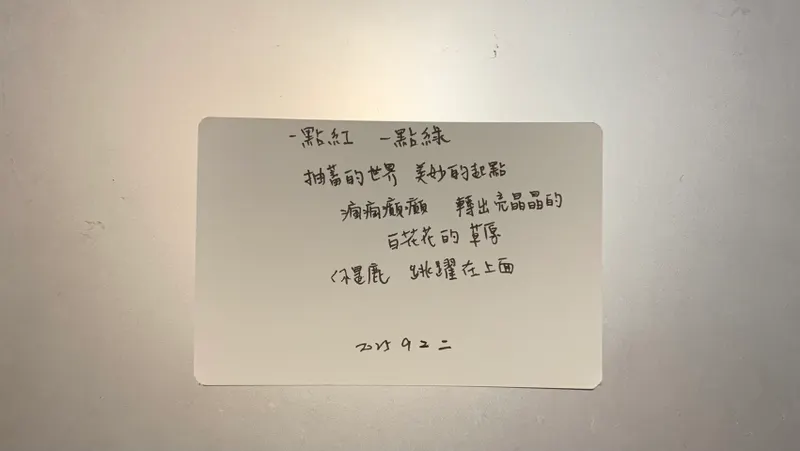 一點紅 一點綠
抽蓄的世界 美妙的起點
瘋瘋癲癲 轉出亮晶晶的
百花花的草原
你是鹿 跳躍在上面
2025 9 2 二